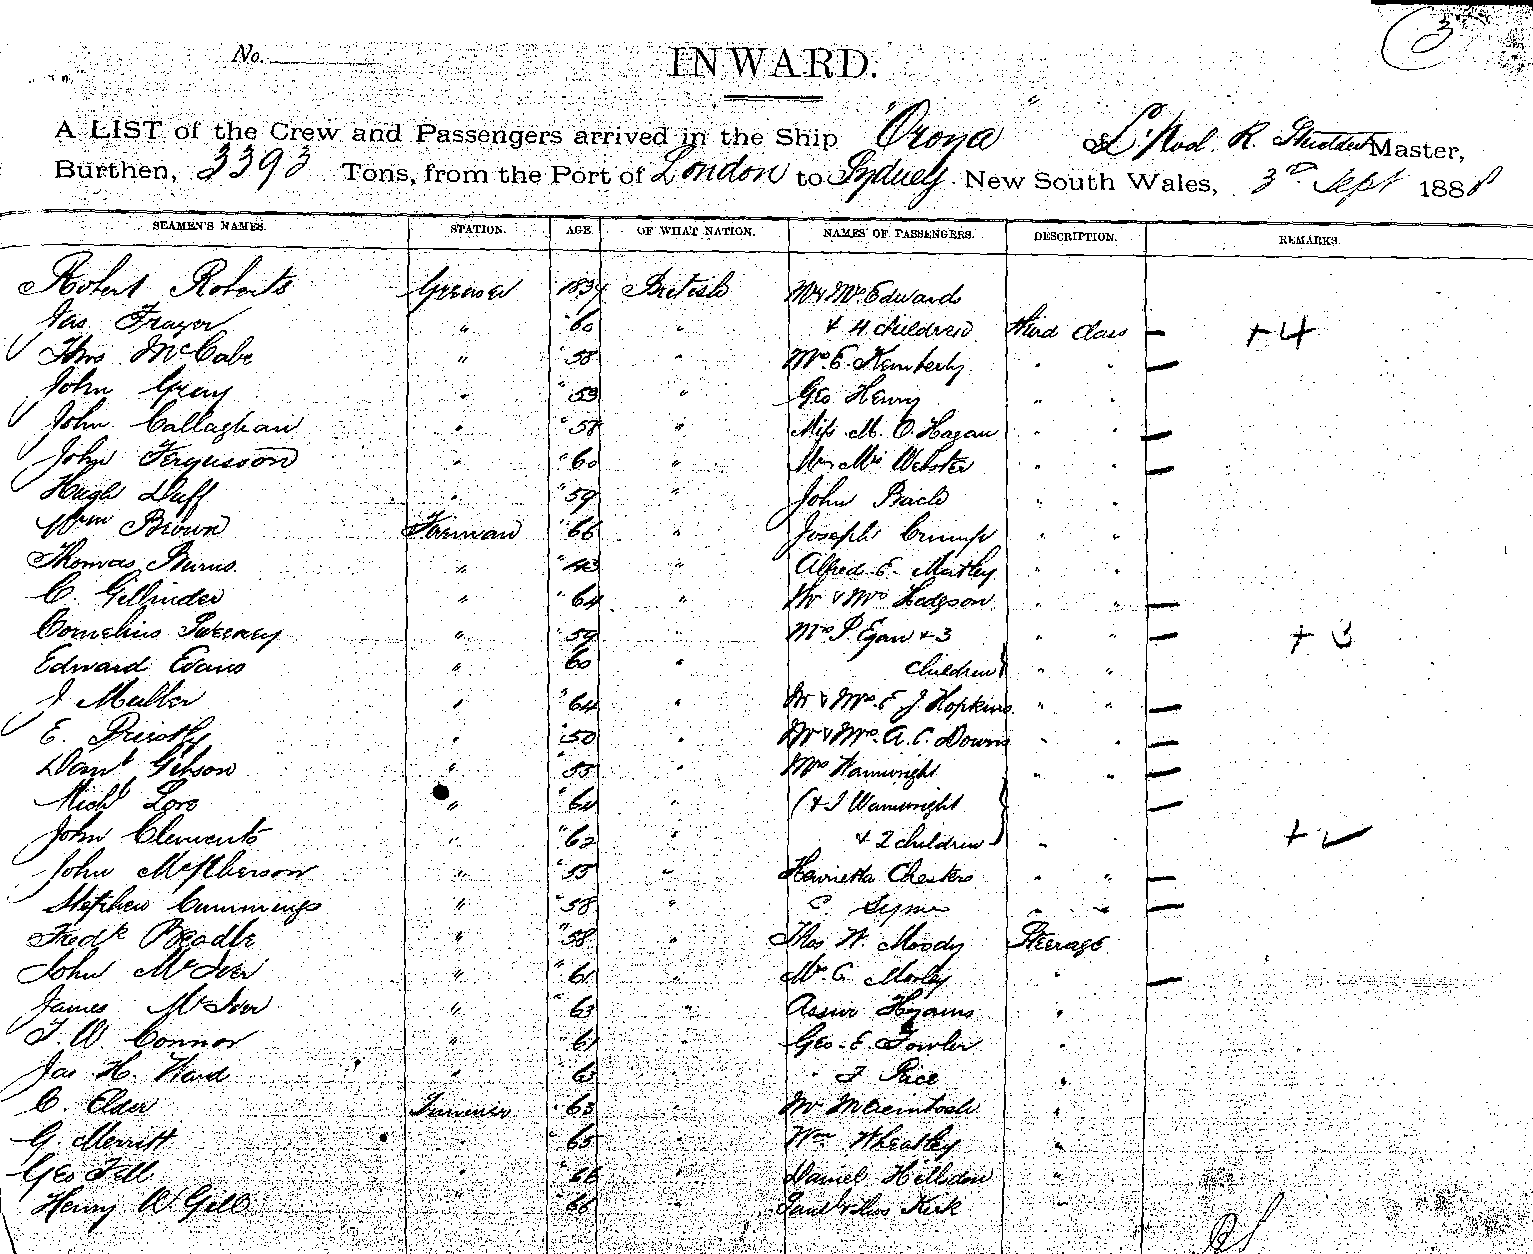 3
No.
INWARD.
A LIST of the Crew and Passengers arrived in the Ship "Orona" of L'pool R. Studdert Master,
Burthen, 3393 Tons, from the Port of London to Sydney New South Wales, 3rd Sept 1888
SEAMEN'S NAMES. STATION. AGE OF WHAT NATION. NAMES OF PASSENGERS. DESCRIPTION. REMARKS.
Robert Roberts Greaser 1834 British Mr & Mrs Edwards
Jas Frazer " " 60 " & 4 children third Class — + 4
Thos McCabe " " 58 " Mrs E. Kemberly " " —
John Gray " " 59 " Geo Henry " "
John Callaghan " " 58 " Miss M. O. Hagan " " —
John Fergusson " " 60 " Mr & Mrs Webster " " —
Hugh Duff " " 59 " John "
Wm Brown Fireman " 66 " Joseph Crump " "
Thomas Burns " " 43 " Alfred E. " "
C. " " 64 " Mr & Mrs Hodgson " " —
Cornelius Sweeney " " 59 " Mrs P Egan & 3 " " — + 3
Edward Evans " " 60 " children } " "
J " " 64 " Mr & Mrs E J Hopkins " " —
E. " " 50 " Mr & Mrs A. C. Downs " " —
Danl Gibson " " 55 " Mrs Wainwright " " —
Michl " " 64 " (& J Wainwright —
John Clements " " 62 " & 2 children } " +
John McPherson " " 55 " Henrietta Chesters " " —
Stephen Cummings " " 58 " C Syme " " —
Fredk " " 58 " Thos W. Moody Steerage
John McIver " " 61 " Mr C. Morley " —
James McIver " " 63 " Hyams "
T. W. Connor " " 61 " Geo. E. Fowler "
Jas H. Ward " " 63 " " "
C. Elder Trimmer " 63 " Mr McIntosh "
G. Merritt " " 65 " Wm Wheatley "
Geo Fell " " 66 " Daniel "
Henry W. Gell " " 66 " Kirk "